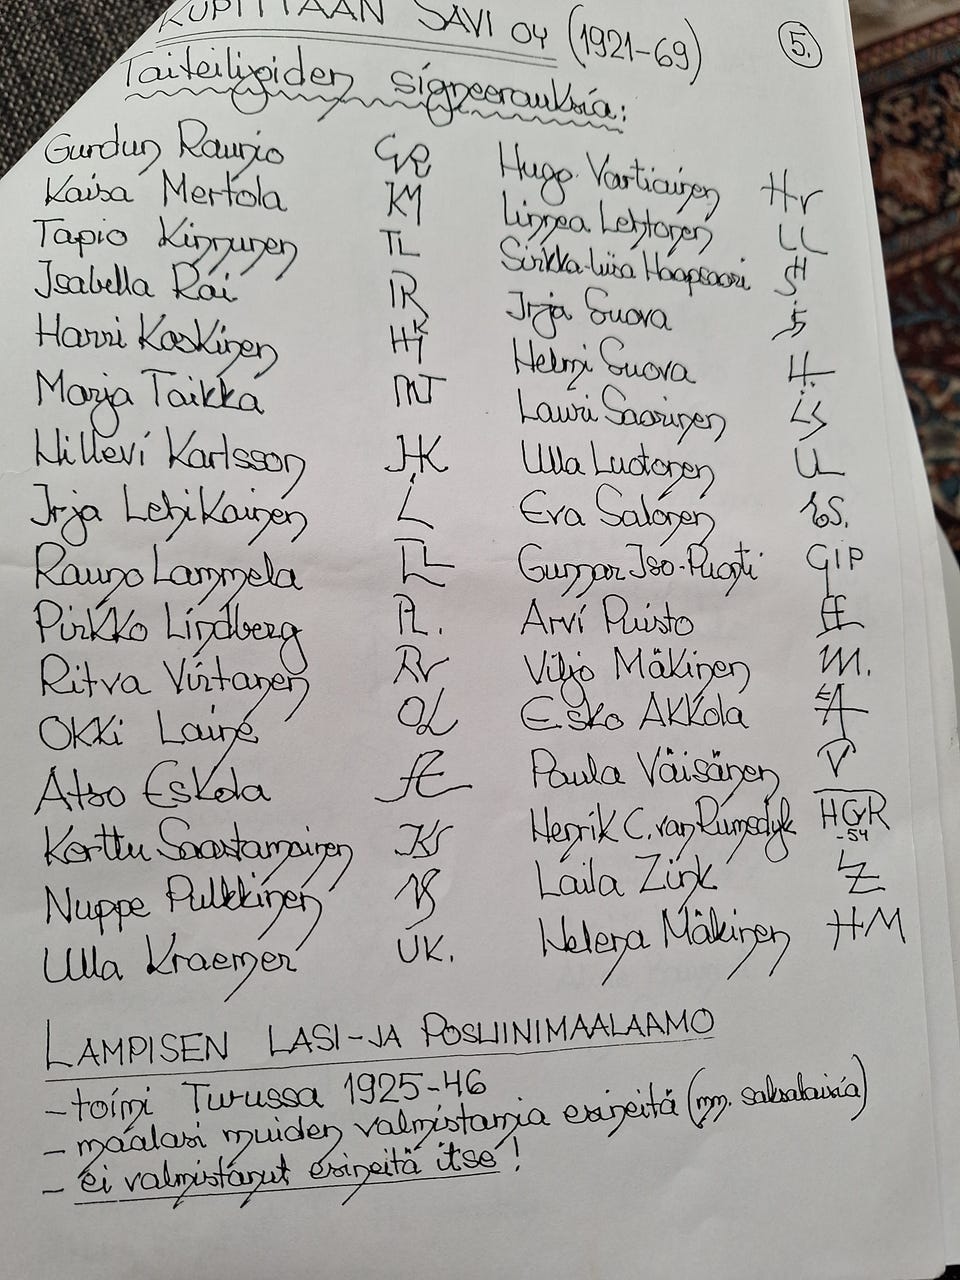 KUPITTAAN SAVI OY (1921-69)
5.
Taiteilijoiden signeerauksia:
Gurdun Raunio GR
Kaisa Mertola KM
Tapio Kinnunen TL
Isabella Rai IR
Harri Koskinen HK
Marja Taikka MT
Hillevi Karlsson HK
Irja Lehikainen L
Rauno Lammela RL
Pirkko Lindberg PL.
Ritva Virtanen RV
Okki Laine OL
Atso Eskola AE
Kerttu Saastamoinen KS
Nuppe Pulkkinen
Ulla Kraemer UK.
Hugo Vartiainen Hv
Linnea Lehtonen LL
Sirkka-Liisa Haapsaari SH
Irja Suova
Helmi Suova H.
Lauri Saarinen LS
Ulla Luotonen UL
Eva Salonen ES.
Gunnar Iso-Puonti GIP
Arvi Puisto
Viljo Mäkinen M.
Esko Akkola EA
Paula Väisänen V
Henrik C. van Rumsdyk HGR
-54
Laila Zink LZ
Helena Mäkinen HM
LAMPISEN LASI-JA POSLIINIMAALAAMO
- toimi Turussa 1925-46
- maalasi muiden valmistamia esineitä (mm. saksalaisia)
- ei valmistanut esineitä itse!